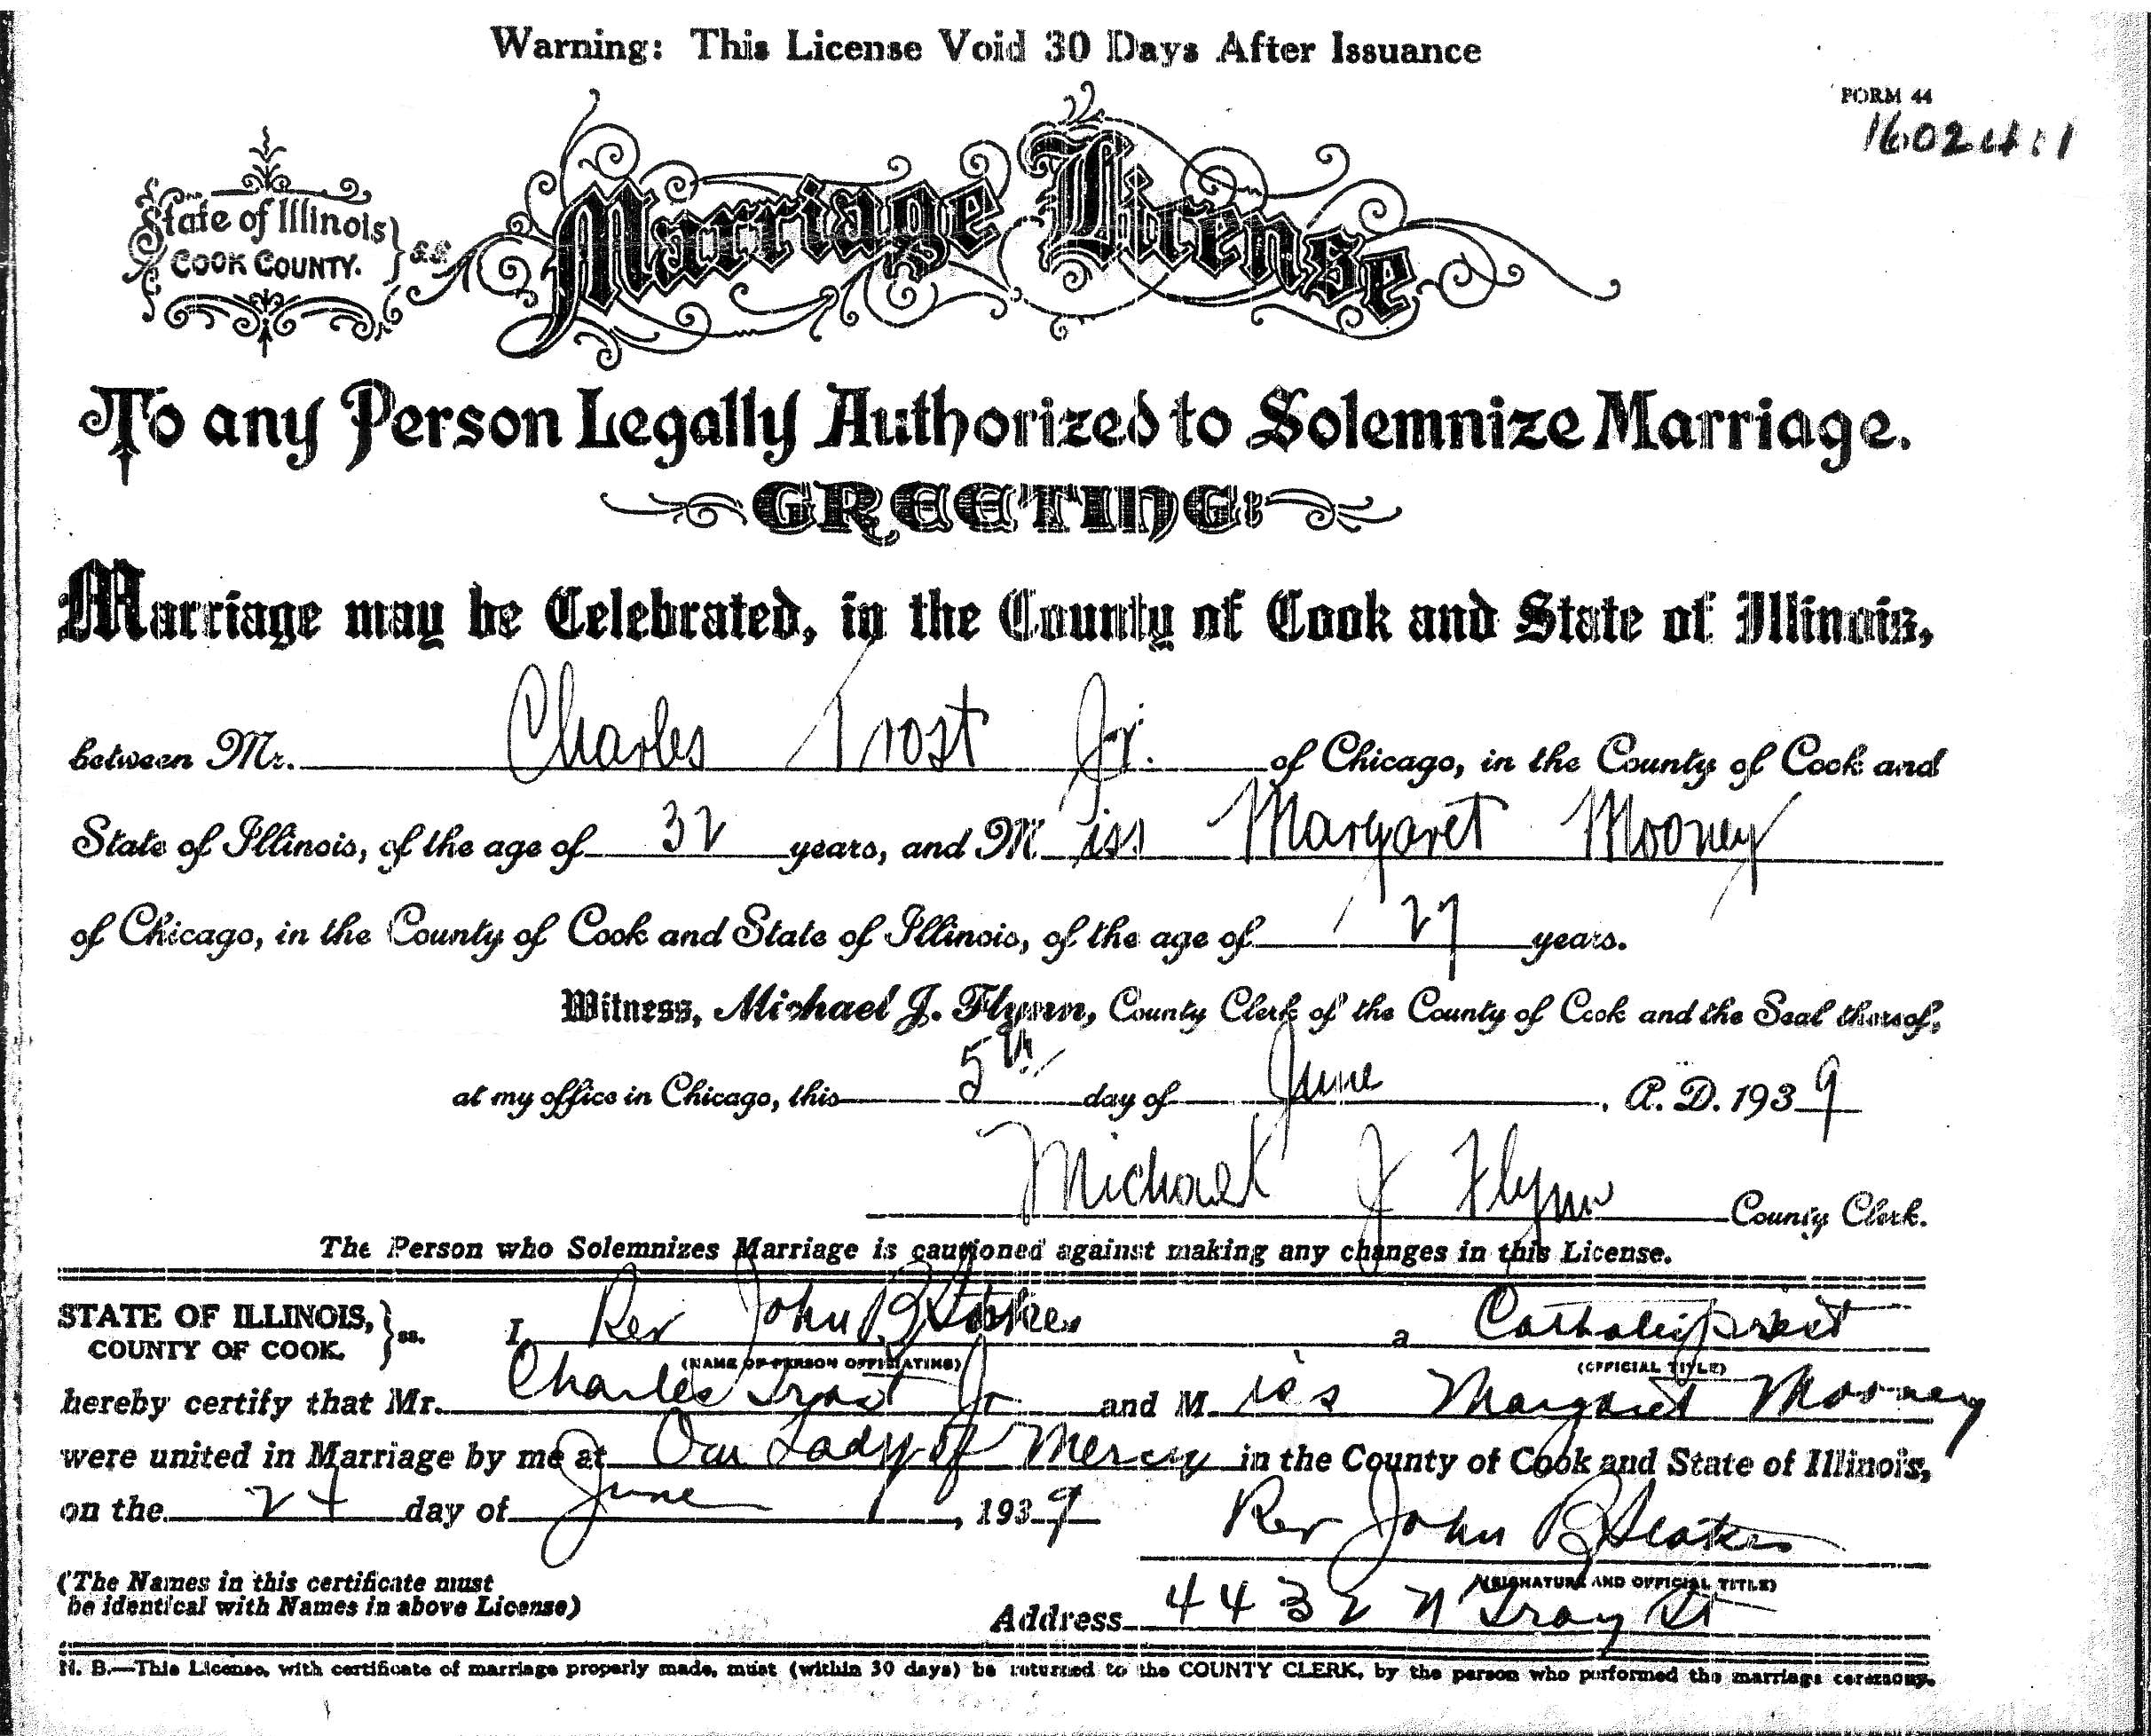 Warning: This License Void 30 Days After Issuance
FORM 44
State of Illinois
COOK COUNTY. } ss
Marriage License
To any Person Legally Authorized to Solemnize Marriage.
GREETING:
Marriage may be Celebrated, in the County of Cook and State of Illinois,
between Mr. Charles Trost Jr. of Chicago, in the County of Cook and
State of Illinois, of the age of 32 years, and Miss Margaret Mooney
of Chicago, in the County of Cook and State of Illinois, of the age of 27 years.
Witness, Michael J. Flynn, County Clerk of the County of Cook and the Seal thereof,
at my office in Chicago, this 5th day of June, A.D. 1939
Michael J Flynn County Clerk.
The Person who Solemnizes Marriage is cautioned against making any changes in this License.
STATE OF ILLINOIS,
COUNTY OF COOK. } ss. I, Rev John B a Catholic priest
(NAME OF PERSON OFFICIATING) (OFFICIAL TITLE)
hereby certify that Mr. Charles Trost Jr and Miss Margaret Mooney
were united in Marriage by me at Our Lady of Mercy in the County of Cook and State of Illinois,
on the 24 day of June, 1939
Rev John B
(SIGNATURE AND OFFICIAL TITLE)
(The Names in this certificate must
be identical with Names in above License)
Address 4432 N Troy St
N. B.—This License, with certificate of marriage properly made, must (within 30 days) be returned to the COUNTY CLERK, by the person who performed the marriage ceremony.